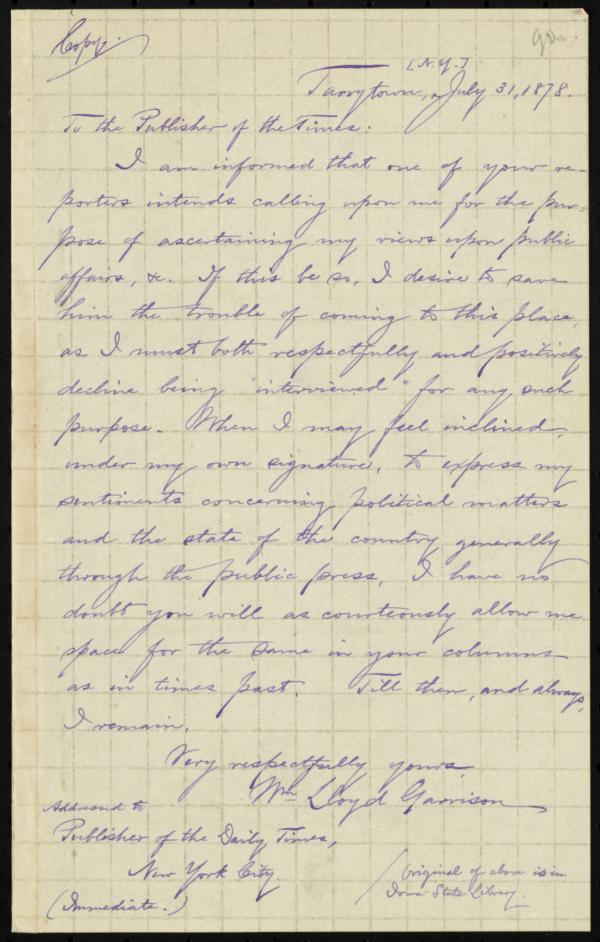 Copy.
[N.Y.]
Tarrytown, July 31, 1878.
To the Publisher of the Times:
I am informed that one of your re-
porters intends calling upon me for the pur-
pose of ascertaining my views upon public
affairs, &c. If this be so, I desire to save
him the trouble of coming to this place,
as I must both respectfully and positively
decline being "interviewed" for any such
purpose. When I may feel inclined,
under my own signature, to express my
sentiments concerning political matters
and the state of the country generally
through the public press, I have no
doubt you will as courteously allow me
space for the same in your columns
as in times past. Till then, and always,
I remain,
Very respectfully yours,
Wm Lloyd Garrison
Addressed to
Publisher of the Daily Times,
New York City.
(Immediate.)
Original of above is in
Iowa State Library.